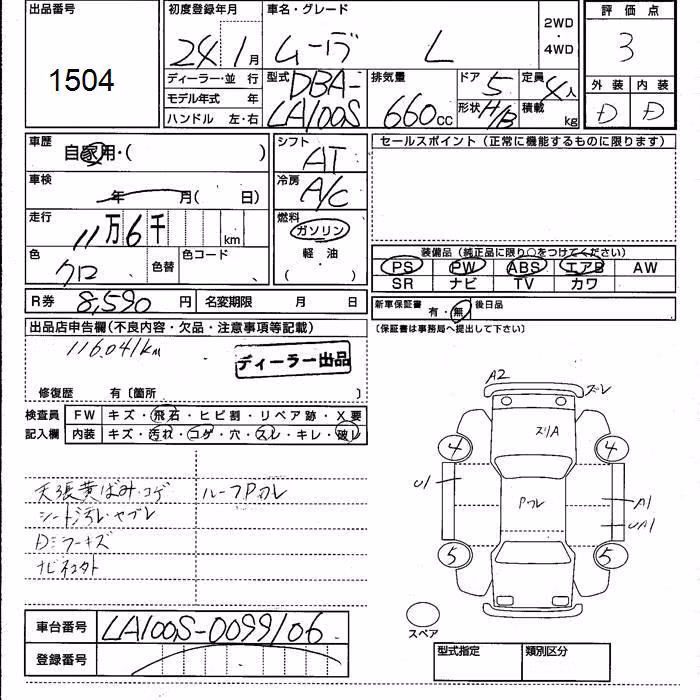 出品番号
1504
初度登録年月
24年1月
車名・グレード
ムーヴ L
2WD
・
4WD
評価点
3
外装 内装
D D
ディーラー・並行
モデル年式 年
ハンドル 左・右
型式
DBA-
LA100S
排気量
660cc
ドア 5
形状 H/B
定員 4人
積載 kg
車歴
自家用・( )
車検
年 月( 日)
走行
11万6千 km
色
クロ
色替
色コード
シフト
AT
冷房
A/C
燃料
ガソリン
軽・油
( )
R券 8,590円
名変期限 月 日
セールスポイント(正常に機能するものに限ります)
装備品(純正品に限り○をつけてください)
PS PW ABS エアB AW
SR ナビ TV カワ
新車保証書 有・無 後日品
(保証書は事務局へ提出して下さい)
出品店申告欄(不良内容・欠品・注意事項等記載)
116,041km
ディーラー出品
修復歴 有〔箇所 〕
検査員
記入欄
FW キズ・飛石・ヒビ割・リペア跡・X要
内装 キズ・汚れ・コゲ・穴・スレ・キレ・破レ
天張黄ばみ・コゲ
シート汚レ・ヤブレ
ルーフPカレ
A2
ズレ
ズリA
4 4
U1
Pカレ
A1
UA1
5 5
スペア
車台番号 LA100S-0099106
登録番号
型式指定
類別区分